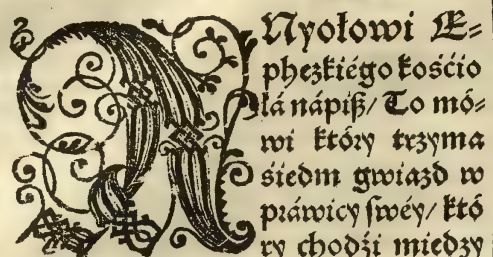 ANyołowi E=
phezkiégo kośćio
lá nápiß/ To mó=
wi który trzyma
śiedm gwiazd w
práwicy swéy/ któ
ry chodźi miedzy